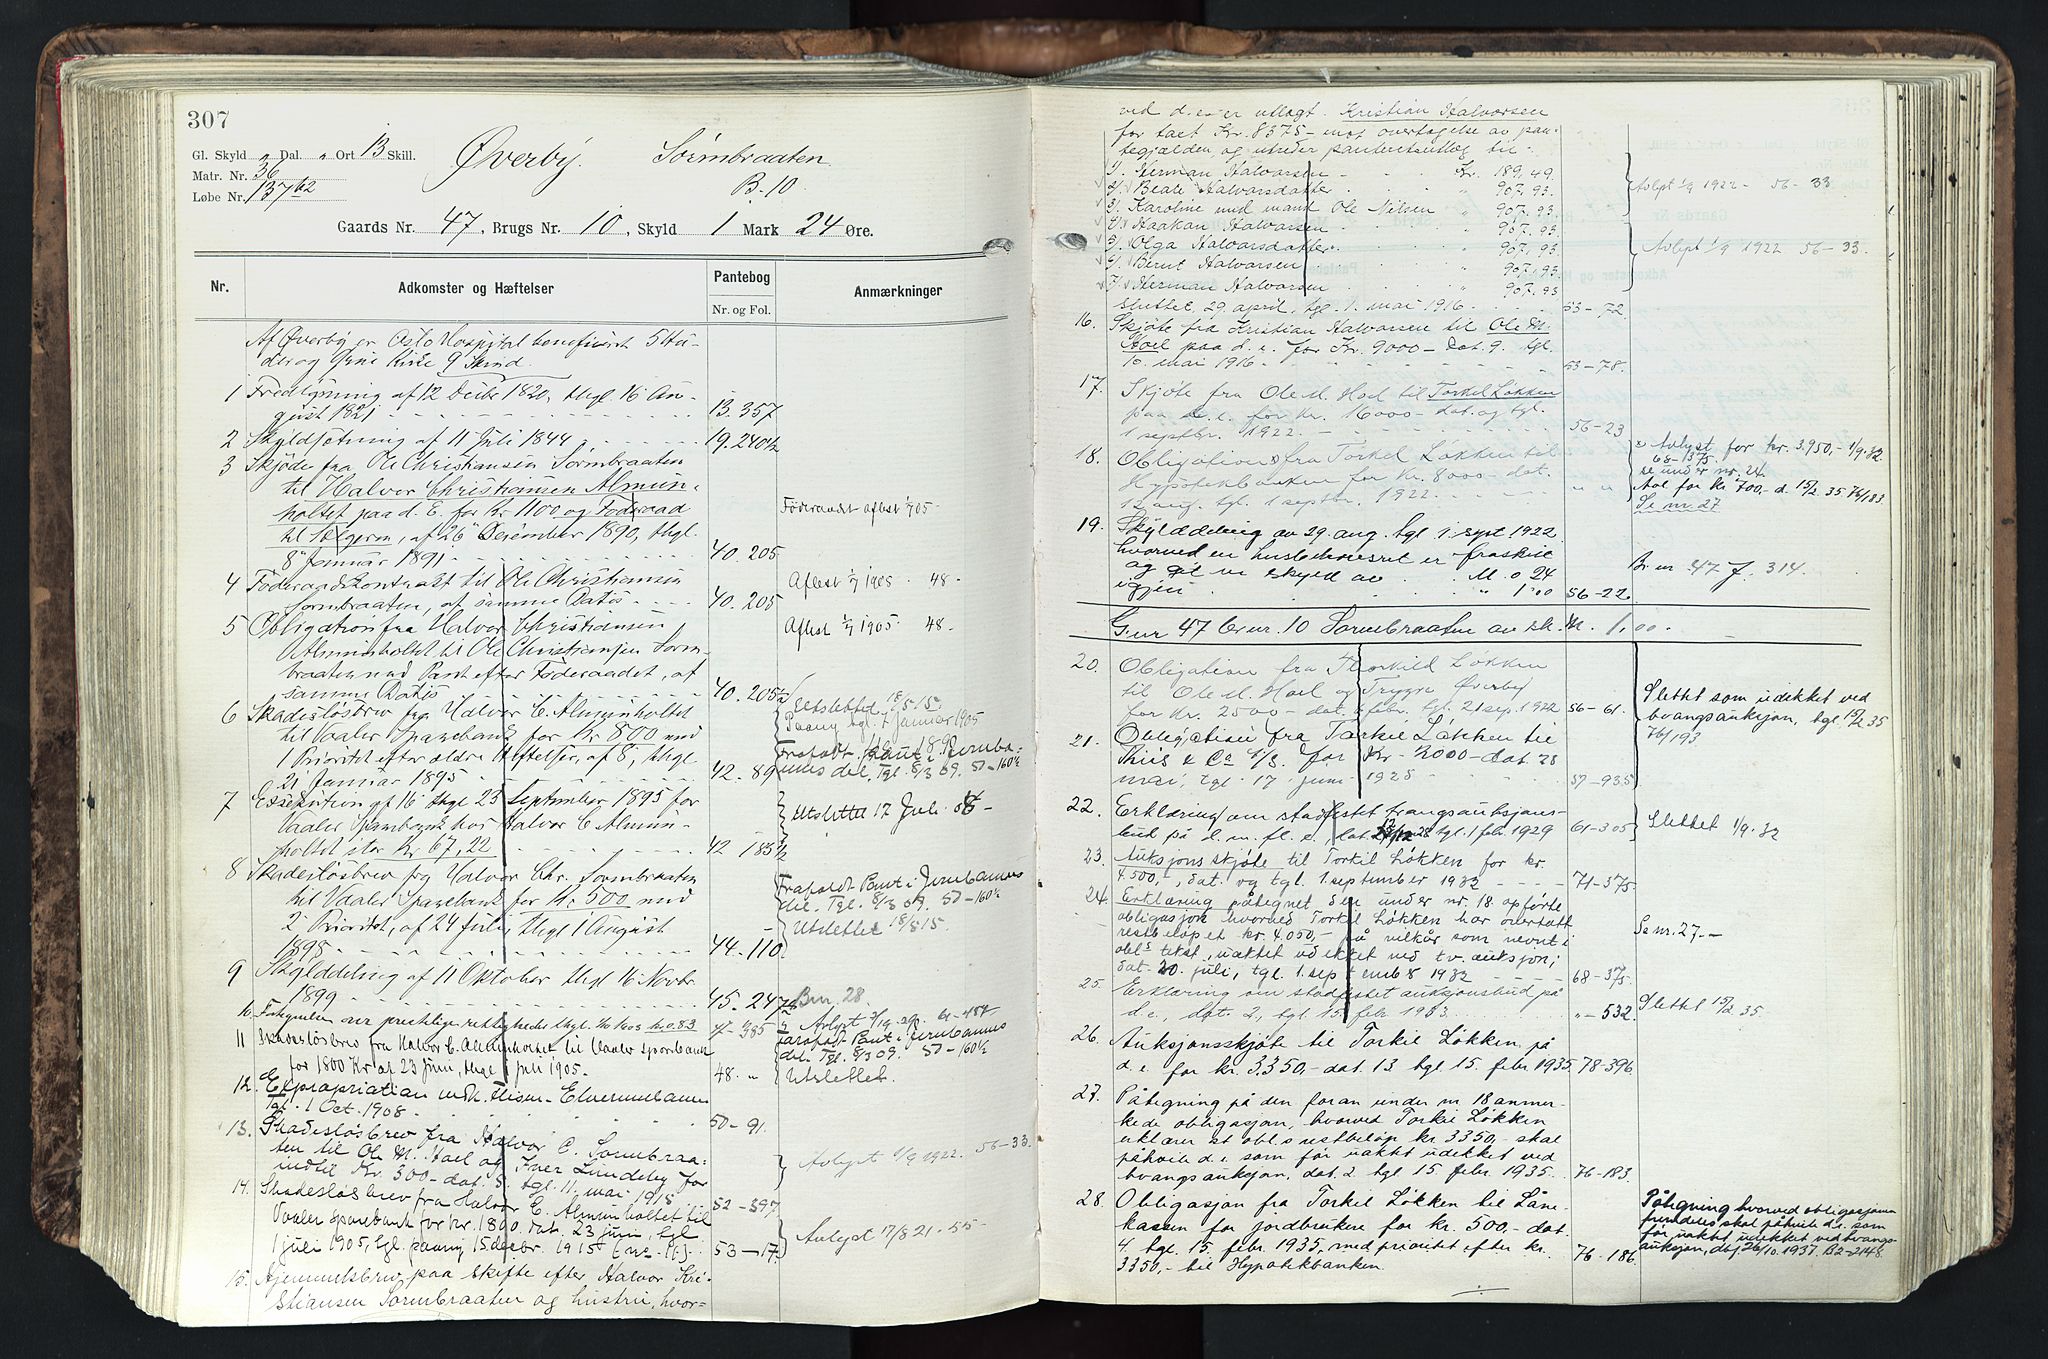 307
Gl. Skyld 2 Dal. " Ort 13 Skill.
Matr. Nr. 36
Løbe Nr. 137b2
Øverby. Sørmbraaten
B. 10
Gaards Nr. 47, Brugs Nr. 10, Skyld 1 Mark 24 Øre.
Nr. Adkomster og Hæftelser Pantebog Nr. og Fol. Anmærkninger
Af Øverby er Oslo Hospital beneficeret 5 Hu-
der og Kirke 9 Skind.
1 Fredlysning af 12 Decbr 1820, thgl 16 Au-
gust 1821 13. 357
2 Skyldsætning af 11 Juli 1844 19. 240b
3 Skjøde fra Ole Christiansen Sørmbraaten
til Halvor Christiansen Almun-
holtet paa d. E. for Kr 1100 og Føderaad Føderaadet aflest 1/7 05
til Sælgeren, af 26 December 1890, thgl.
8 Januar 1891 40. 205
4 Føderaadskontrakt til Ole Christiansen Aflest 1/7 1905. 48.
Sørmbraaten, af samme Datis 40. 205
5 Obligation fra Halvor Christiansen Aflest 1/7 1905. 48.
Almunholtet til Ole Christiansen Sørm-
braaten med Pant efter Føderaadet, af
samme Datis 40. 205
6 Skadesløsbrev fra Halvor C. Almunholtet Udslettet 18/5 15
til Vaaler Sparebank for Kr 800 med Paateg. tgl. 7 Januar 1905
1 Prioritet efter ældre Heftelser, af 8, thgl. Frafaldt Pant i Jernba-
21 Januar 1895 42. 89 nens del, Tgl. 8/3 09. 50-160½
7 Exsekution af 16 thgl 23 September 1895 for
Vaaler Sparebank hos Halvor C Almun- Utslettet 17 Juli
holtet stor Kr 67,22 42 185½
8 Skadesløsbrev fra Halvor Chr. Sørmbraaten
til Vaaler Sparebank for Kr. 500 med Frafaldt Pant i Jernbanens
2 Prioritet, af 24 Juli, thgl 1 August del. Tgl. 8/3 09. 50-160½
1898 44. 110 Utslettet 18/5 15.
9 Skylddeling af 11 Oktober thgl 16 Novbr.
1899 45. 247 Bnr. 28.
10. 47-385
11 Skadesløsbrev fra Halvor C. Almenholtet til Vaaler Sparebank Frafaldt Pant i Jernbanens
for 1800 Kr af 23 Juni, thgl 1 juli 1905. 48. " del. Tgl. 8/3 09. 50-160½
Utslettet.
12. Expropriation vedk. Flisen-Elverumbanen
Tgl. 1 Oct. 1908 50-91.
13. Skadesløsbrev fra Halvor C. Sørmbraa-
ten til Ole M. Hoel og Iver Lundeby for Avlyst 1/9 1922. 56-33.
indtil Kr. 300- dat. 5. tgl. 11. mai 1915 52-397
14. Skadesløsbrev fra Halvor C. Almunholtet til
Vaaler Sparebank for kr. 1800 dat. 23 juni, tgl. Avlyst 17/8 21. 55-
1 juli 1905, tgl. paany 15 decbr. 1915 53-17.
15. Hjemmelsbrev paa skifte efter Halvor Kri-
stiansen Sørmbraaten og hustru, hvor-
ved d. e. er utlagt Kristian Halvorsen
for takst Kr. 8375- mot overtagelse av pan-
tegjælden og utreder panteretsutlæg til:
1/. Herman Halvorsen Kr. 189,49.
2/. Beate Halvorsdatter " 907,93. Avlyst 1/9 1922- 56-33
3/. Karoline med mand Ole Nilsen " 907,93.
4/. Haakan Halvorsen " 907,93.
5/. Olga Halvorsdatter " 907,93. Avlyst 1/9 1922 56-33
6/. Bernt Halvorsen " 907,93.
7/. Herman Halvorsen " 907,93
sluttet 29. april, tgl. 1. mai 1916 53-72.
16. Skjøte fra Kristian Halvorsen til Ole M.
Hoel paa d. e. for Kr. 9000- dat. 9. tgl.
10 mai 1916 53-78.
17. Skjøte fra Ole M. Hoel til Torkel Løkken
paa d. e. for kr. 16000- dat. og tgl.
1 septbr. 1922. 56-23
18. Obligation fra Torkel Løkken til x Avlyst for kr. 3.950,- 1/9.32.
Hypotekbanken for kr. 8000- dat. 68-375. se under nr. 24.
12 aug. tgl. 1 septbr. 1922 " " Avl for kr 700,- d. 15/2 35 76/183
Se nr. 27
19. Skylddeling av 29. aug. tgl 1. sept 1922
hvorved en husbehovsret er fraskilt
og git en skyld av M. 0 24 Br. nr 47 f. 314.
igjen " 1 00 56-22.
G.nr 47 br.nr. 10 Sørmbraaten av sk. M. 1,00.
20. Obligation fra Thorkild Løkken
til Ole M. Hoel og Trygve Øverby Slettet som udekket ved
for kr. 2500- dat. febr. tgl. 21 sep. 1922 56-61. tvangsauksjon, tgl. 15/2 35
76/193.
21. Obligation fra Torkil Løkken til
Thiis & Co A/S for Kr. 2000- dat. 28
mai, tgl. 17 juni 1925 57-935
22. Erklæring om stadfestet tvangsauksjons-
bud på d. m. fl. e., dat. tgl. 1 febr. 1929 61-305 Slettet 1/9.32
23. Auksjonsskjøte til Torkil Løkken for kr.
4.500,-, dat. og tgl. 1. september 1932 71-375
24. Erklæring påtegnet den under nr. 18 opførte
obligasjon hvorved Torkil Løkken har overtatt
restbeløpet kr. 4.050,- på vilkår som nevnt i Se nr. 27.-
obls tekst, uaktet udekket ved tv. auksjon;
dat. 20. juli, tgl. 1. september 1932 68-375.
25. Erklæring om stadfestet auksjonsbud på
d. e., dat. 2, tgl. 15. febr 1933. "-532. Slettet 15/2 35.
26. Auksjonsskjøte til Torkil Løkken på
d. e. for kr. 3.350,- dat. 13 tgl 15. febr 1935. 78-396
27. Påtegning på den foran under nr 18 anmer-
kede obligasjon, hvorved Torkil Løkken
erklærer at obl.s restbeløp kr. 3350,- skal
påhvile d. e. som før uaktet udekket ved
tvangsauksjon, dat. 2. tgl 15. febr 1935. 76-183.
28. Obligasjon fra Torkel Løkken til Lån- Påtegning hvorved obligasjonen
kassen for jordbrukere for kr. 500,- dat. fremdeles skal påhvile d.e. som
4. tgl. 15. febr 1935, med prioritet efter kr. før uaktet udekket ved tvangs-
3350,- til Hypotekbanken. 76-186. auksjon, dbf 26/10. 1937. B2-2148.